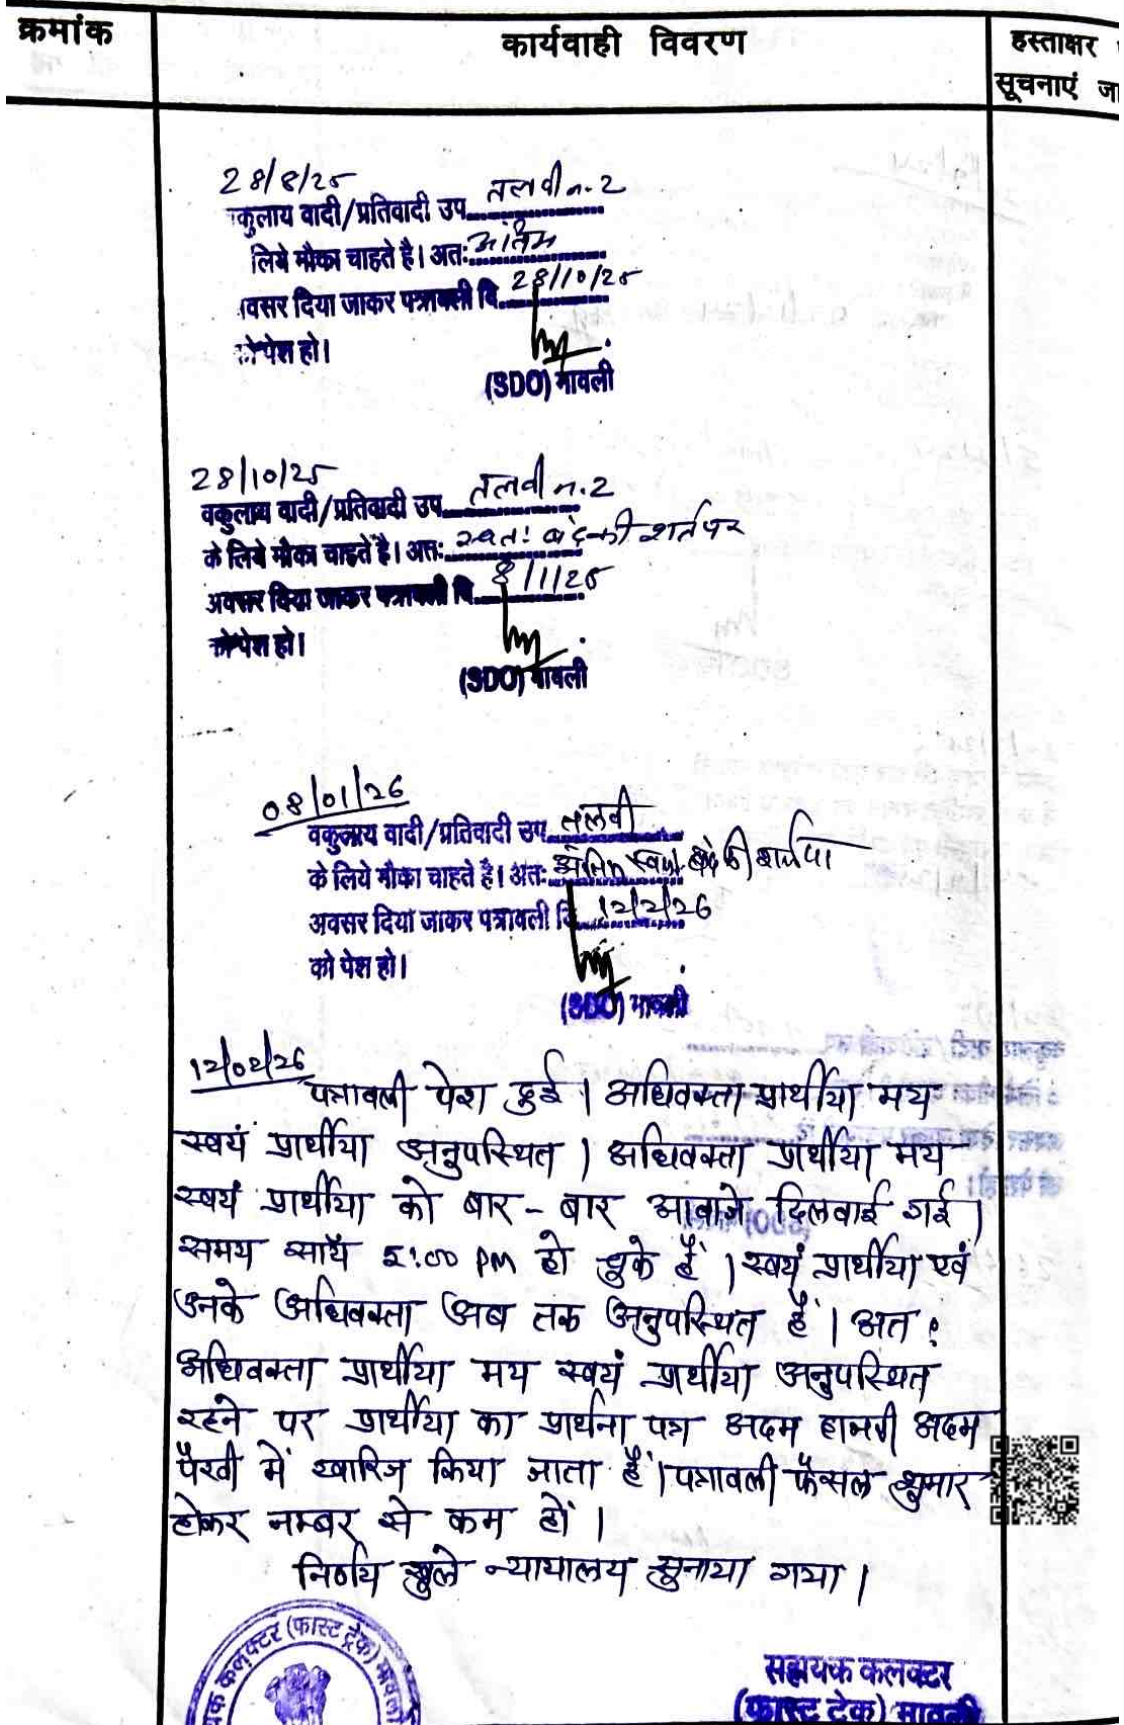 क्रमांक
कार्यवाही विवरण
हस्ताक्षर
सूचनाएं जा
28/8/25
वकुलाय वादी/प्रतिवादी उप. तलवी न.2
लिये मौका चाहते है। अतः अंतिम
वसर दिया जाकर पत्रावली दि. 28/10/25
को पेश हो।
(SDO) मावली
28/10/25
वकुलाय वादी/प्रतिवादी उप. तलवी न.2
के लिये मौका चाहते है। अतः स्वतः बंद की शर्त पर
अवसर दिया जाकर पत्रावली दि. 8/1/25
को पेश हो।
(SDO) मावली
08/01/26
वकुलाय वादी/प्रतिवादी उप. तलवी
के लिये मौका चाहते है। अतः अंतिम स्वतः बंद की शर्त पर
अवसर दिया जाकर पत्रावली दि. 12/2/26
को पेश हो।
(SDO) मावली
12/02/26
पत्रावली पेश हुई। अधिवक्ता प्रार्थीया मय
स्वयं प्रार्थीया अनुपस्थित। अधिवक्ता प्रार्थीया मय
स्वयं प्रार्थीया को बार-बार आवाजे दिलवाई गई।
समय सायं 5:00 PM हो चुके हैं। स्वयं प्रार्थीया एवं
उनके अधिवक्ता अब तक अनुपस्थित हैं। अतः
अधिवक्ता प्रार्थीया मय स्वयं प्रार्थीया अनुपस्थित
रहने पर प्रार्थीया का प्रार्थना पत्र अदम हाजरी अदम
पैरवी में खारिज किया जाता हैं। पत्रावली फैसल शुमार
होकर नम्बर से कम हों।
निर्णय खुले न्यायालय सुनाया गया।
यक कलक्टर (फास्ट ट्रेक) मावली
सहायक कलक्टर
(फास्ट ट्रेक) मावली